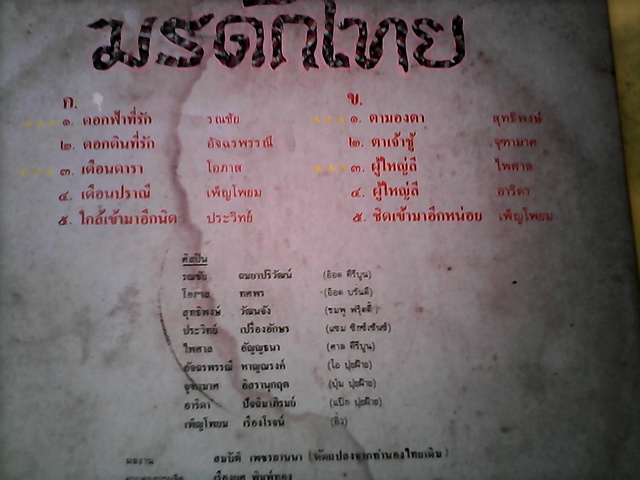 มรดกไทย
ก.
๑. ดอกฟ้าที่รัก รณชัย
๒. ดอกดินที่รัก อัจฉรพรรณี
๓. เดือนดารา โอภาส
๔. เดือนปราณี เพ็ญโพยม
๕. ใกล้เข้ามาอีกนิด ประวิทย์
ข.
๑. ตามองตา สุทธิพงษ์
๒. ตาเจ้าชู้ จุฑามาศ
๓. ผู้ใหญ่ลี ไพศาล
๔. ผู้ใหญ่ลี อาริดา
๕. ชิดเข้ามาอีกหน่อย เพ็ญโพยม
ศิลปิน
รณชัย ถมยาปริวัฒน์ (อ๊อด คีรีบูน)
โอภาส ทศพร (อ๊อด บรั่นดี)
สุทธิพงษ์ วัฒนจัง (ชมพู ฟรุ๊ตตี้)
ประวิทย์ เปรื่องอักษร (แซม ซิกซ์เซ้นซ์)
ไพศาล อัญญธนา (ศาล คีรีบูน)
อัจฉรพรรณี หาญณรงค์ (โอ ปุยฝ้าย)
จุฑามาศ อิสรานุกฤต (บุ๋ม ปุยฝ้าย)
อาริดา ปัจฉิมาภิรมย์ (แป๊ก ปุยฝ้าย)
เพ็ญโพยม เรืองโรจน์
ผลงาน สมบัติ เพชรลานนา (ดัดแปลงจากทำนองไทยเดิม)